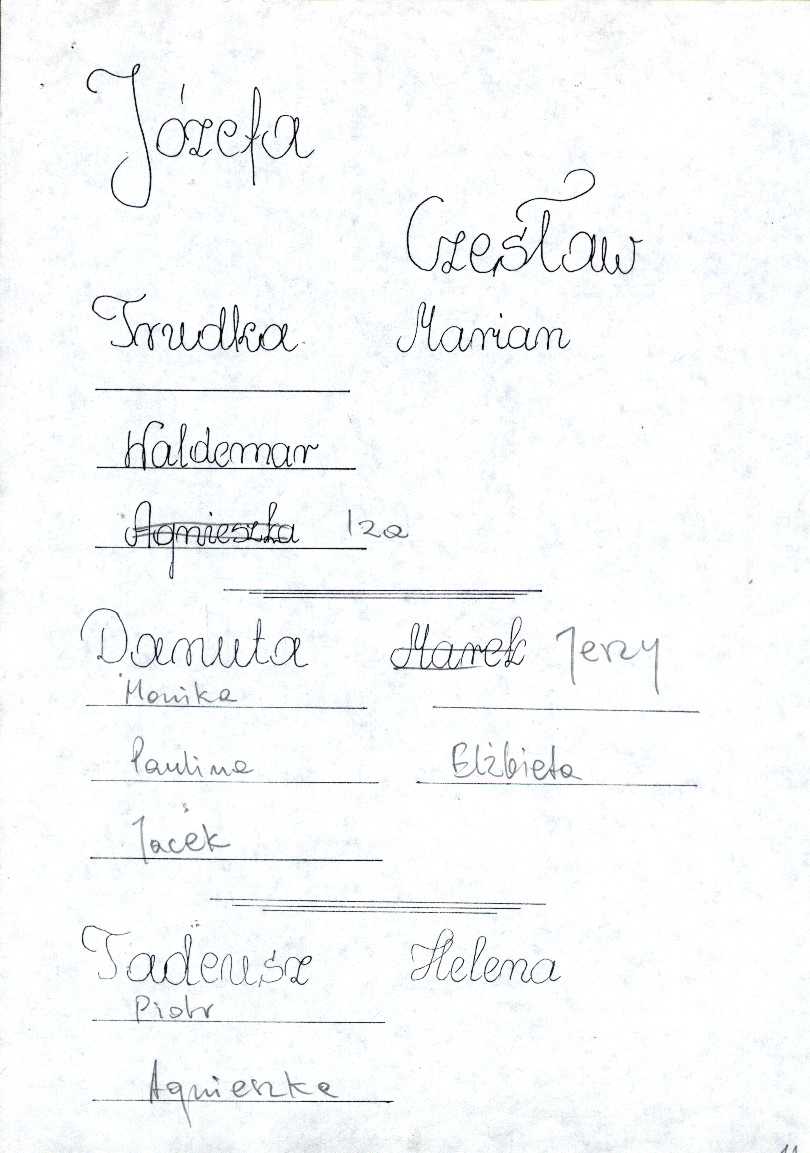 Józefa
Czesław
Trudka Marian
Waldemar
Agnieszka Iza
Danuta Marek Jerzy
Monika
Paulina Elżbieta
Jacek
Tadeusz Helena
Piotr
Agnieszka